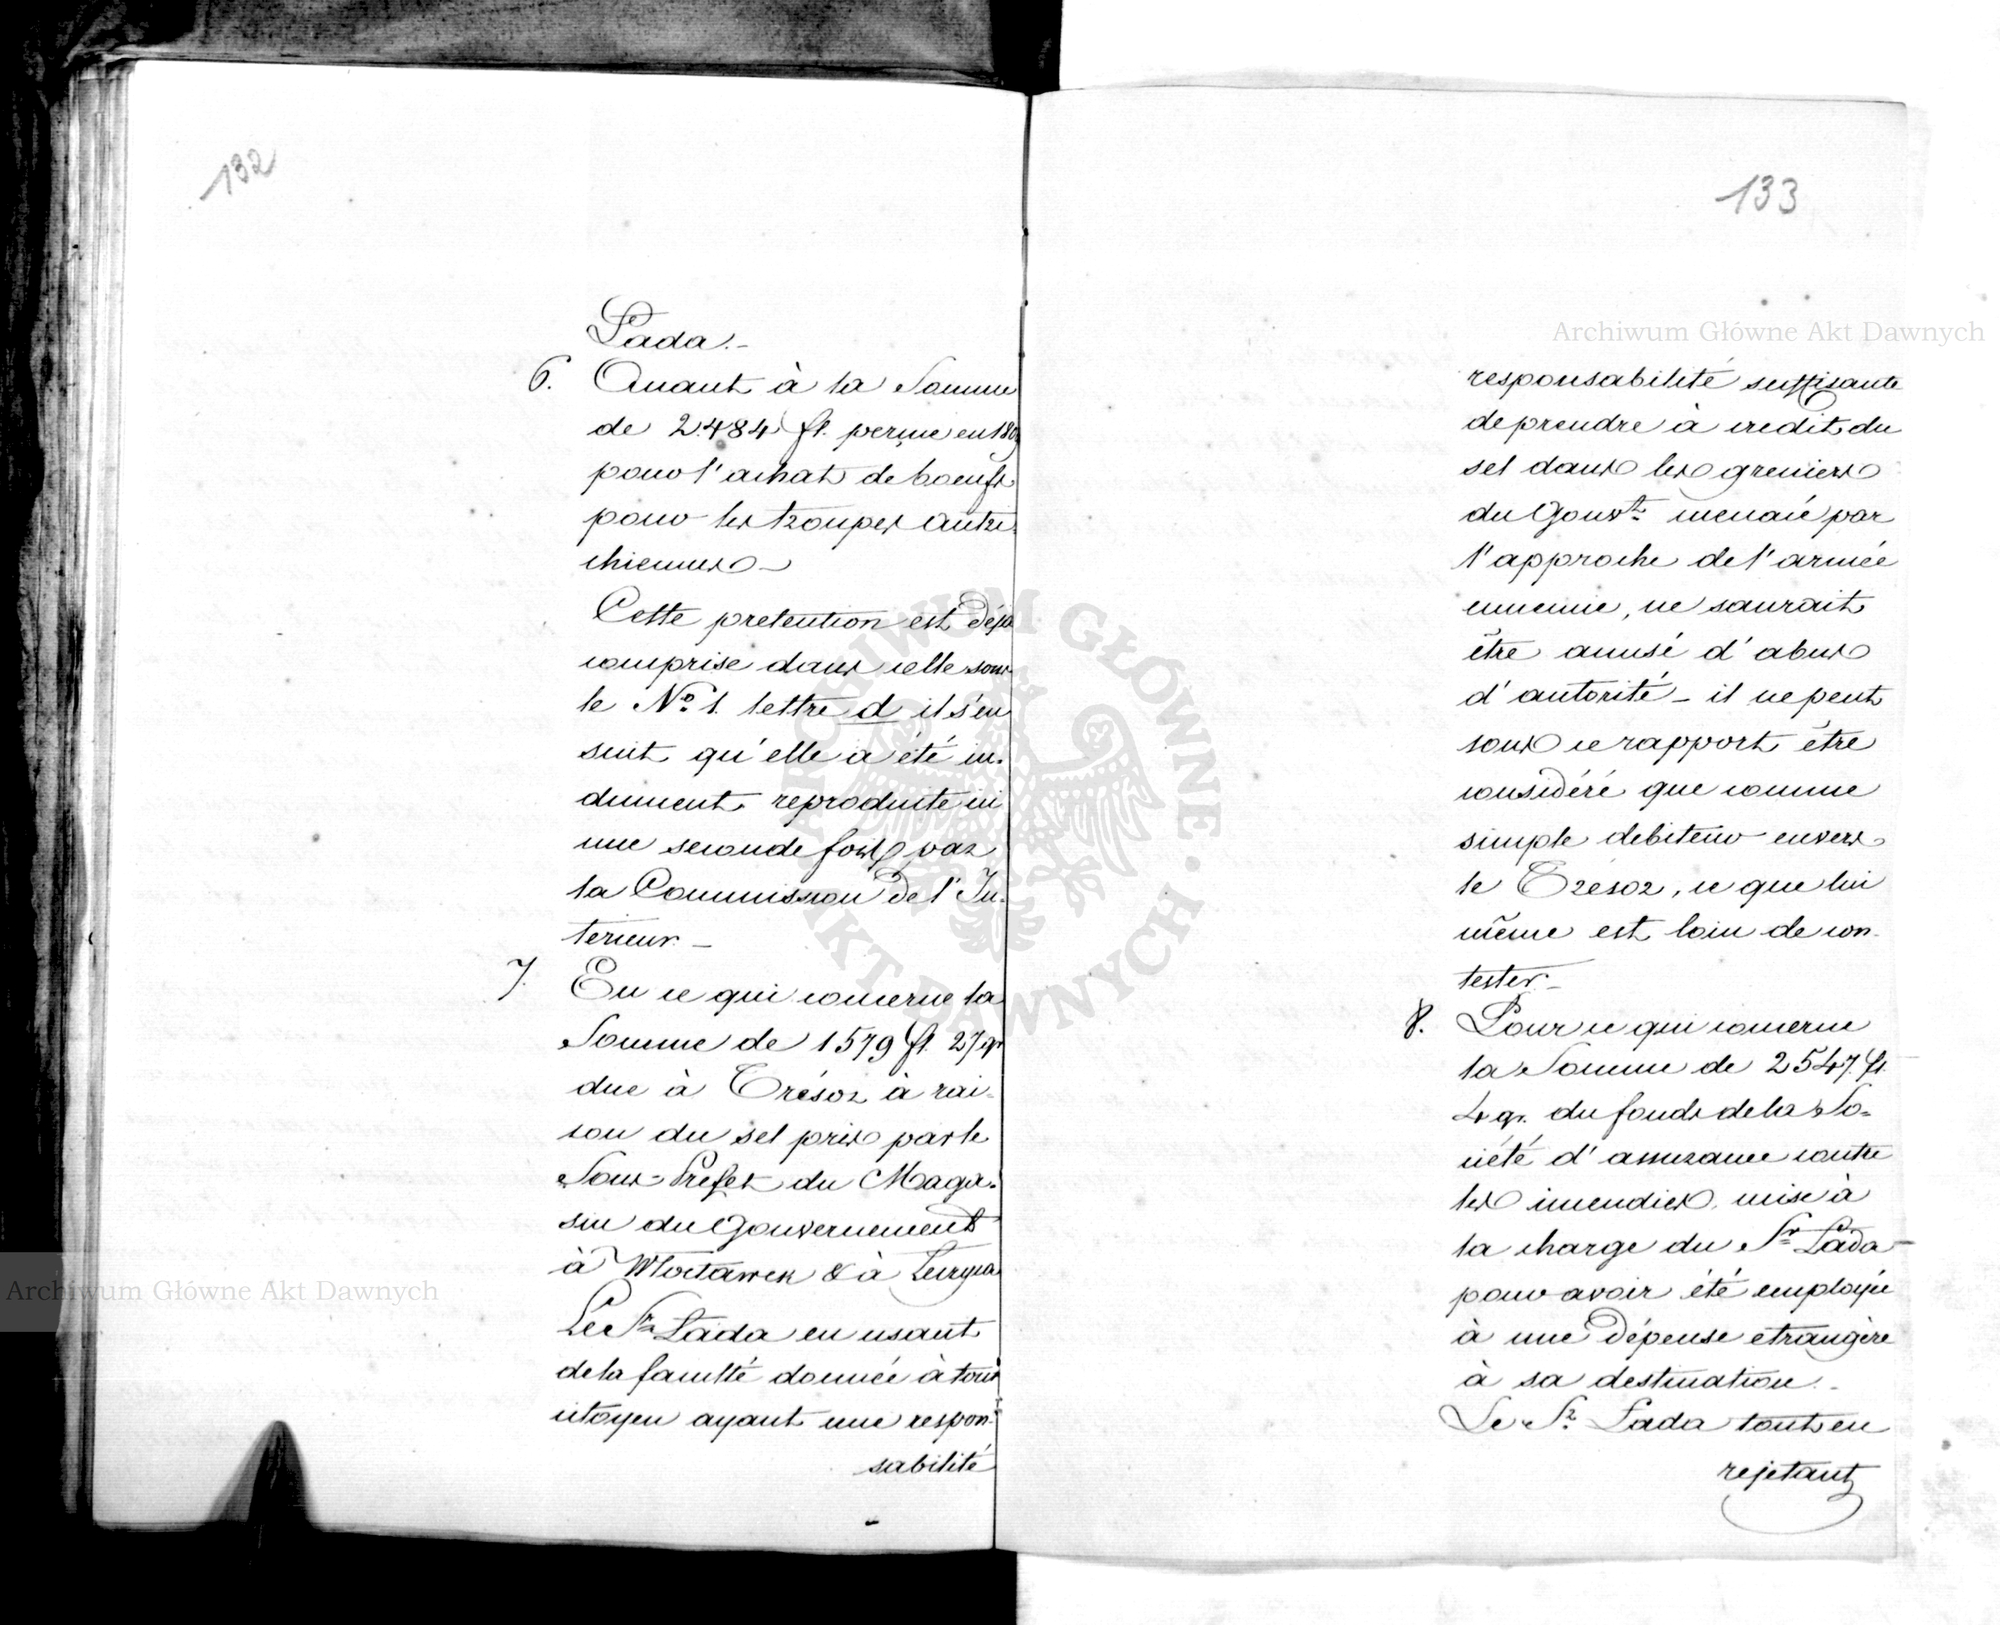 132
Lada.-
6. Quant à la Somme
de 2484 fl. perçue en 1809
pour l'achat de boeufs
pour les troupes autri-
chiennes -
Cette pretention est déja
comprise dans celle sous
le No. 1. lettre d il s'en
suit qu'elle a été in-
dument reproduite ici
une seconde fois par
la Commission de l'In-
terieur. -
7. En ce qui concerne la
Somme de 1579 fl. 27 gr
due à Trésor à rai-
son du sel pris par le
Sous-Prefet du Maga-
sin du Gouvernement
à Wloclawek & à Lenczyca
Le Sr. Lada en usant
de la faculté donnée à tout
citoyen ayant une respon-
sabilité
133
responsabilité suffisante
de prendre à credit du
sel dans les greniers
du Gouvt. menacé par
l'approche de l'armée
ennemie, ne saurait
être accusé d'abus
d'autorité - il ne peut
sous ce rapport être
considéré que comme
simple debiteur envers
le Trésor, ce que lui
même est loin de con-
tester. -
8. Pour ce qui concerne
la Somme de 2547. fl.
4 gr. du fonds de la So-
ciété d'assurance contre
les incendies, mise à
la charge du Sr. Lada -
pour avoir été employée
à une dépense etrangère
à sa destination. -
Le Sr. Lada tout en
rejetant
Archiwum Główne Akt Dawnych
Archiwum Główne Akt Dawnych
ARCHIWUM GŁÓWNE · AKT DAWNYCH ·